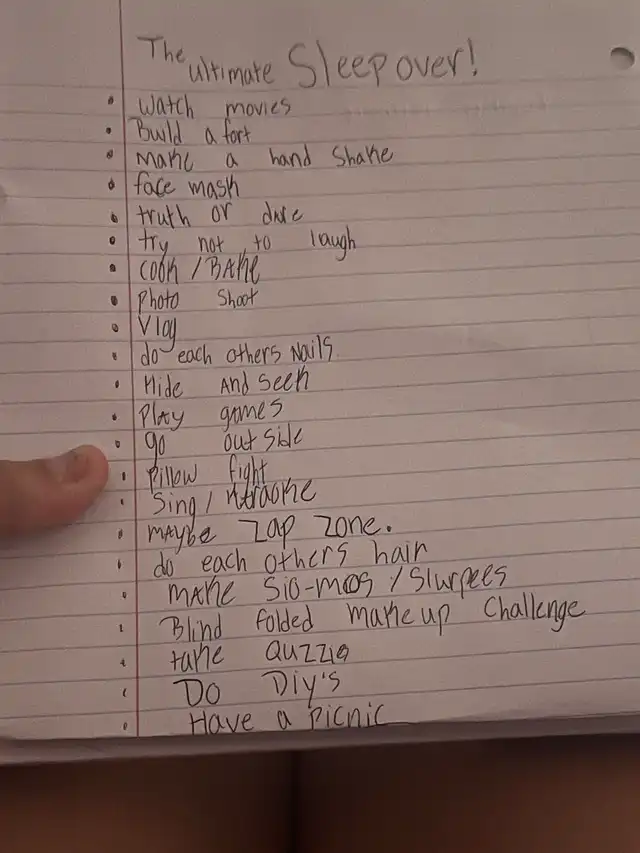 The ultimate Sleepover!
Watch movies
Build a fort
Make a hand Shake
face mask
truth or dare
try not to laugh
Cook / BAKe
Photo Shoot
Vlog
do each others Nails.
Hide And Seek
Play games
go out side
Pillow fight
Sing / Karaoke
MAYbe Zap Zone.
do each others hair
MAKe Sio-mos / Slurpees
Blind folded make up Challenge
take Quzzie
Do Diy's
Have a Picnic